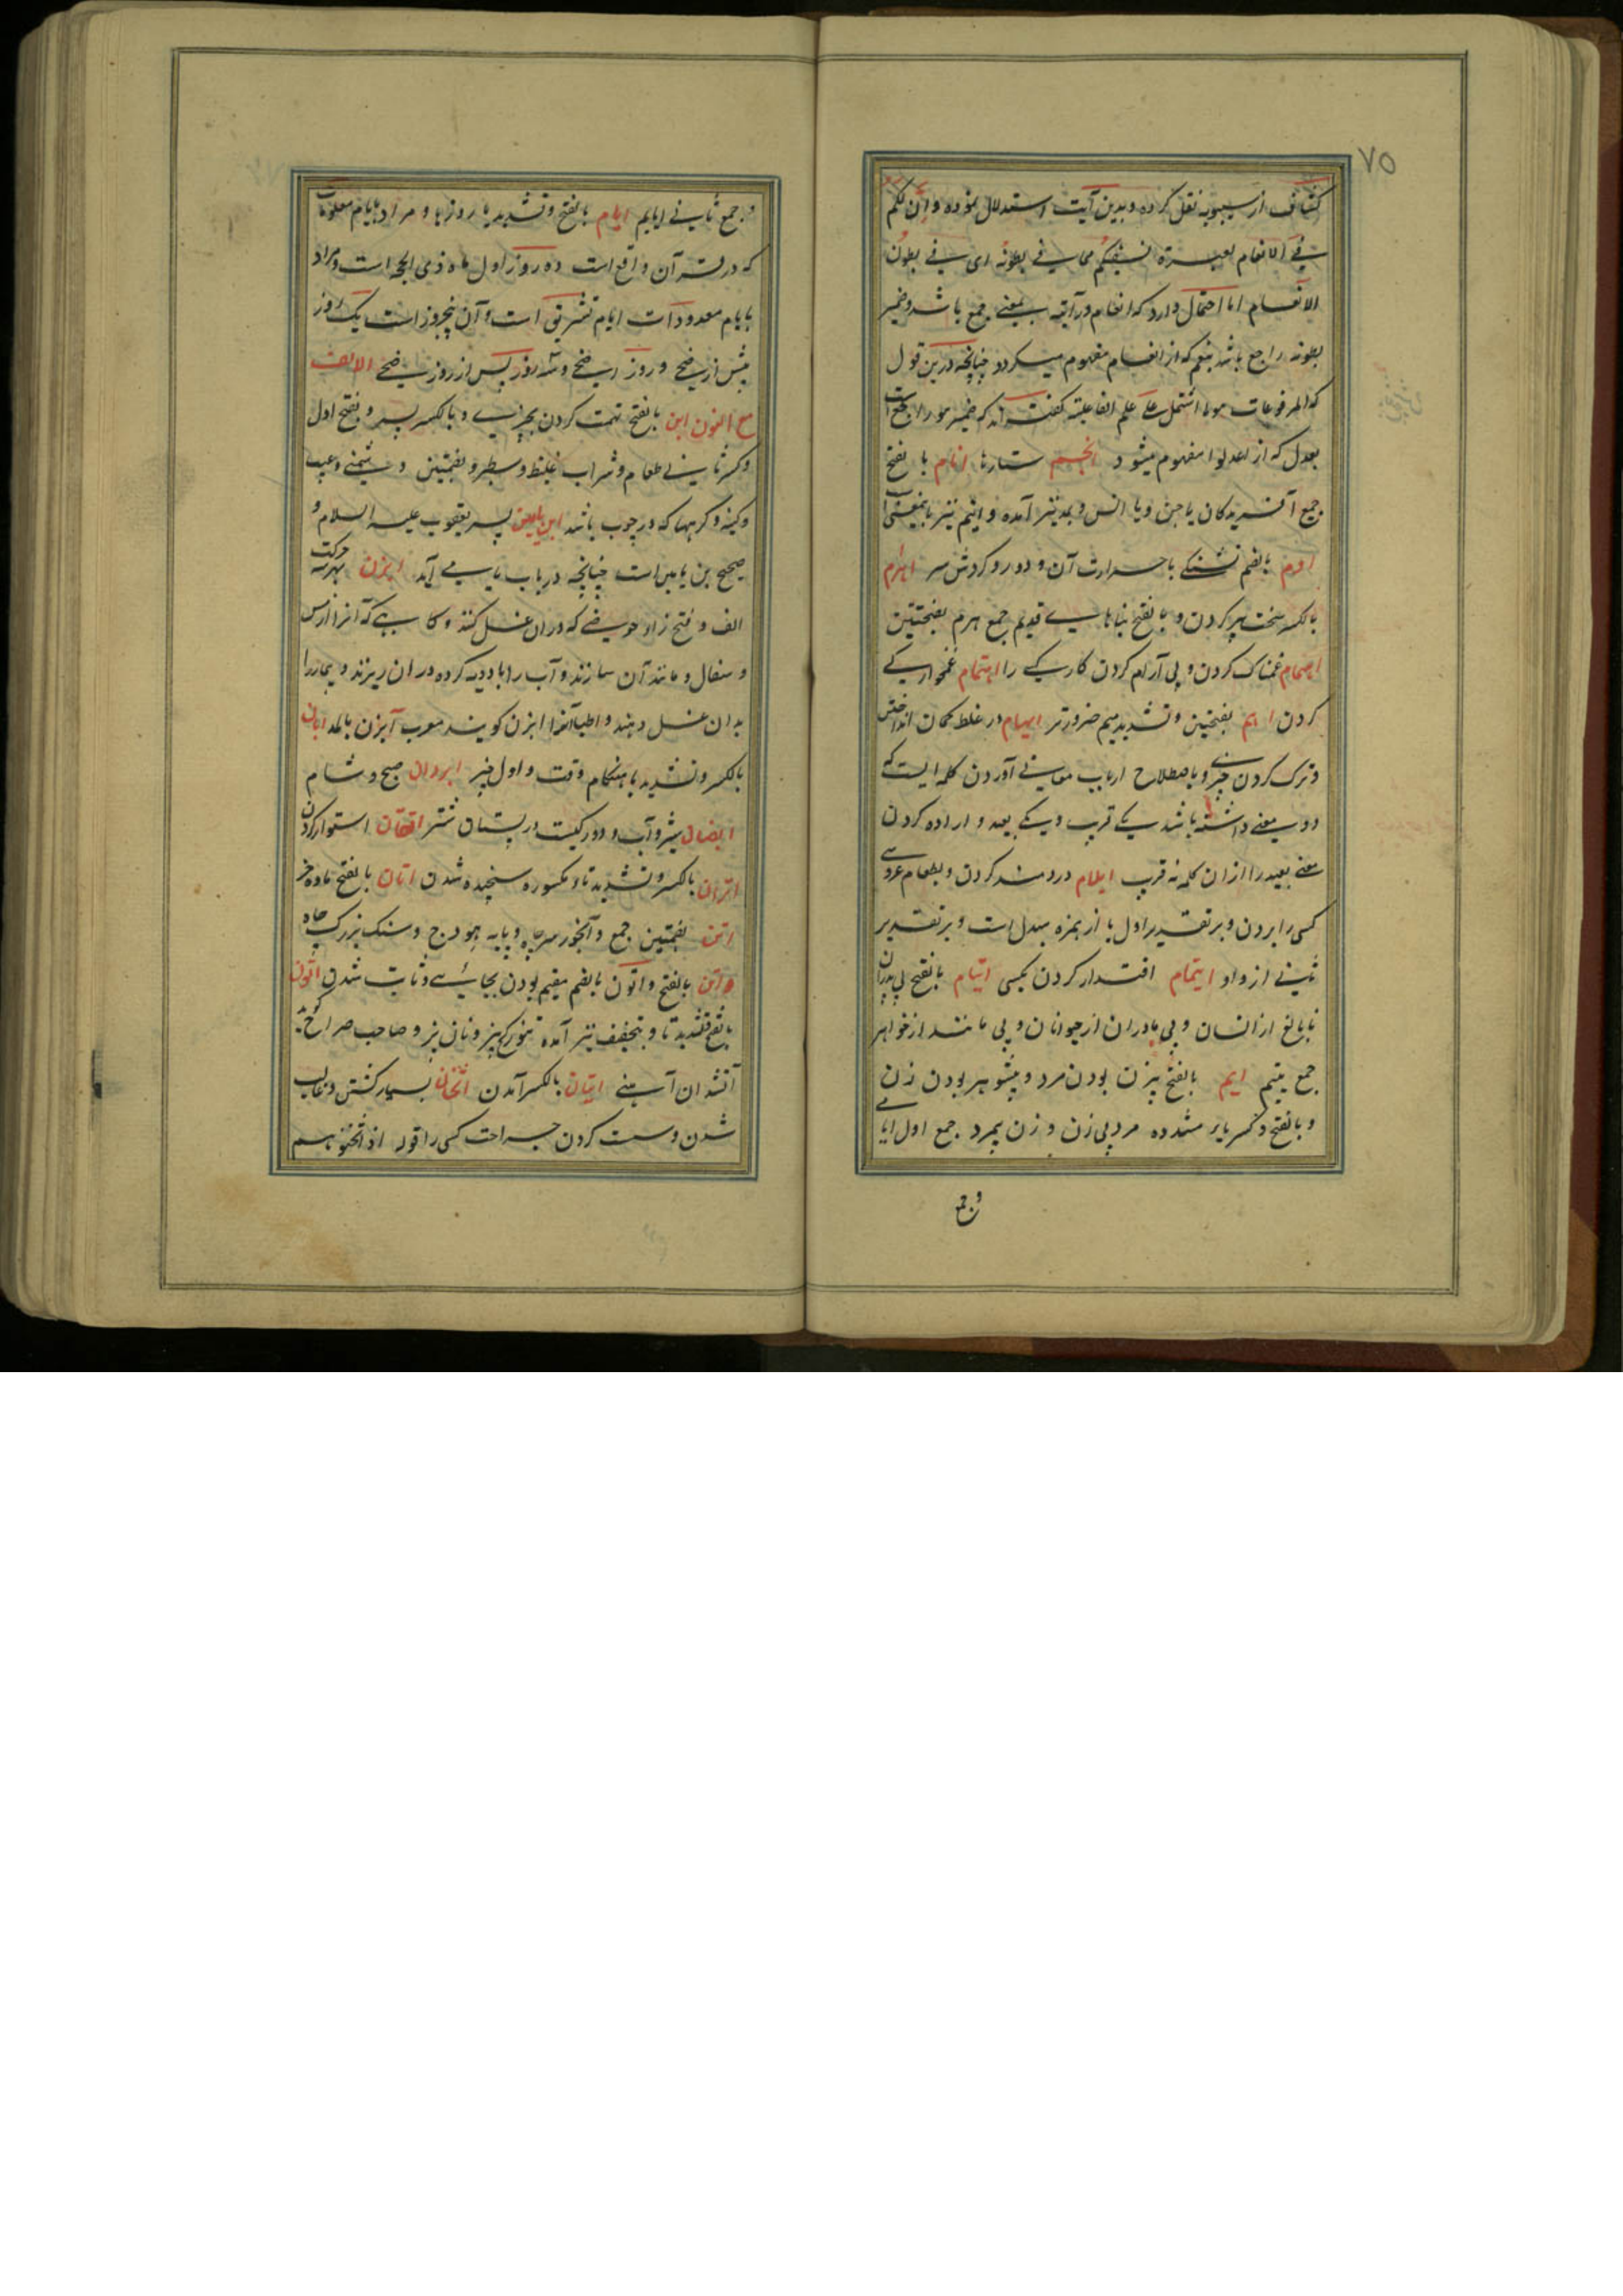 ۷۵
کشاف از سیبویه نقل کرده و بدین آیت استدلال نموده و ان لکم
فی الانعام لعبرة نسقیکم مما فی بطونه ای فی بطون
الانعام اما احتمال دارد که انعام در آیه بمعنی جمع باشد و ضمیر
بطونه راجع باشد بنعم که از انعام مفهوم میگردد چنانچه درین قول
که المرفوعات هو ما اشتمل علی علم الفاعلیة گفته اند که ضمیر هو راجع است
بعدل که از اعدلوا مفهوم میشود انجم ستارها انام با لفتح
جمیع آفریدگان یا جن و یا انس و بمد نیز آمده و انیم نیز باینمعنی است
اوام بالضم تشنگی با حرارت آن و دود و گردش سر اهرام
بالکسر سخت پیر کردن و بالفتح بناهای قدیم جمع هرم بفتحتین
اهمام غمناک کردن و بی آرام کردن کار کسی را اهتمام غمخواری
کردن اهم بفتحتین و تشدید میم ضرورتر ایهام در غلط گمان انداختن
و ترک کردن چیزی و باصطلاح ارباب معانی آوردن کلمه ایست که
دو معنی داشته باشد یکی قریب و یکی بعید و اراده کردن
معنی بعید را ازان کلمه نه قریب ایلام دردمند کردن و بطعام عروسی
کسی را بردن و بر تقدیر اول یا از همزه مبدل است و بر تقدیر
ثانی از واو ایتمام اقتدار کردن بکسی ایتام بالفتح بی پدران
نابالغ از انسان و بی مادران از حیوانان و بی مانند از خواهر
جمع یتیم ایم بالفتح بیزن بودن مرد و بیشوهر بودن زن
و بالفتح و کسر یای مشدده مرد بی زن و زن بیمرد جمع اول ایامی
و جمع
و جمع ثانی ایایم ایام بالفتح و تشدید یا روزها و مراد بایام معلومات
که در قرآن واقع است ده روز اول ماه ذی الحجه است و مراد
بایام معدودات ایام تشریق است و آن پنجروز است یک روز
پیش از اضحی و روز اضحی و سه روز پس از روز اضحی الالف
مع النون ابن بالفتح تهمت کردن بچیزی و بالکسر پسر و بفتح اول
و کسر ثانی طعام و شراب غلیظ و سطبر و بضمتین دشمنی و عیب
و کینه و گرهها که در چوب باشد ابن یامین پسر یعقوب علیه السلام و
صحیح بن یامین است چنانچه در باب بای می آید ابزن بهر سه حرکت
الف و فتح زاء حوضی که دران غسل کنند و کاسه که آنرا از مس
و سفال و مانند آن سازند و آب را با دویه کرده دران ریزند و بیمار را
بدان غسل دهند و اطبا آنرا ابزن گویند معرب آبزن بالمد ابان
بالکسر و تشدید با هنگام وقت و اول چیز ابردان صبح و شام
ابیضان شیر و آب و دو رگیست در پستان شتر اتقان استوار کردن
اتزان بالکسر و تشدید تاء مکسوره سنجیده شدن اتان بالفتح ماده خر
اتن بضمتین جمع و آبخور سر چاه و پایه هودج و سنگ بزرگ چاه
و اتن بالفتح و اتون بالضم مقیم بودن بجائی و ثابت شدن اتون
بالفتح و تشدید تا و بتخفیف نیز آمده تنور گچ پز و نان پز و صاحب صراح گوید
آتشدان آهنی اتیان بالکسر آمدن اثخان بسیار کشتن و غالب
شدن و سست کردن جراحت کسی را قوله اذ اثخنتموهم